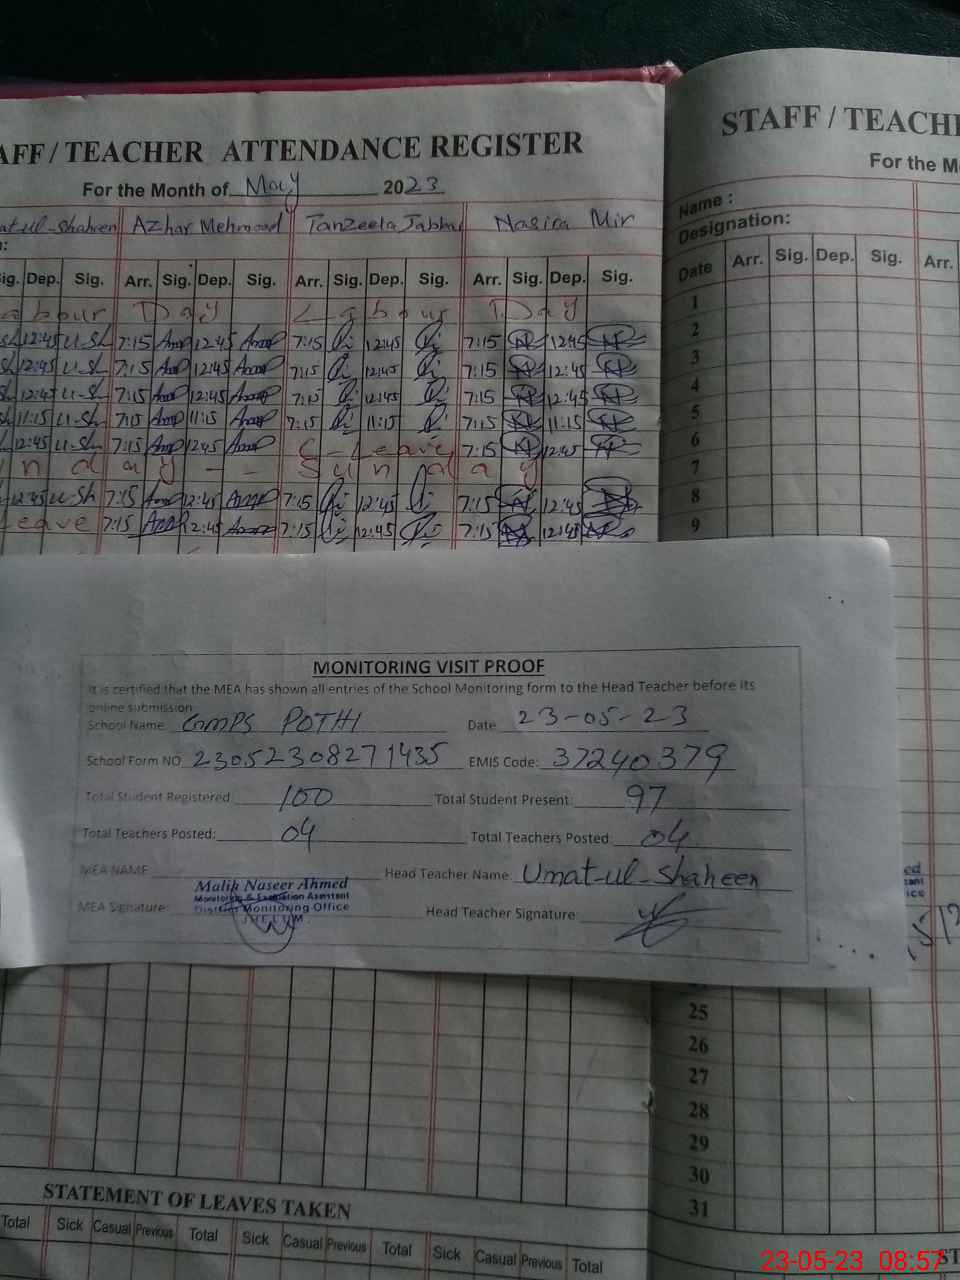 AFF / TEACHER ATTENDANCE REGISTER
For the Month of May 2023
at-ul-Shaheen Azhar Mehmood Tanzeela Jabbar Nasira Mir
n:
Sig. Dep. Sig. Arr. Sig. Dep. Sig. Arr. Sig. Dep. Sig. Arr. Sig. Dep. Sig.
abour Day Labour Day
12:45 U-Sh 7:15 12:45 7:15 12:45 7:15 12:45
12:45 U-Sh 7:15 12:45 7:15 12:45 7:15 12:45
12:45 U-Sh 7:15 12:45 7:15 12:45 7:15 12:45
11:15 U-Sh 7:15 11:15 7:15 11:15 7:15 11:15
12:45 U-Sh 7:15 12:45 C-Leave 7:15 12:45
nday - - Sunday
12:45 U-Sh 7:15 12:45 7:15 12:45 7:15 12:45
Leave 7:15 12:45 7:15 12:45 7:15 12:45
STAFF / TEACHE
For the M
Name :
Designation:
Date Arr. Sig. Dep. Sig. Arr.
1
2
3
4
5
6
7
8
9
MONITORING VISIT PROOF
It is certified that the MEA has shown all entries of the School Monitoring form to the Head Teacher before its
online submission
School Name GMPS POTHI Date 23-05-23
School Form NO 23052308271435 EMIS Code: 37240379
Total Student Registered: 100 Total Student Present: 97
Total Teachers Posted: 04 Total Teachers Posted: 04
MEA NAME Head Teacher Name Umat-ul-Shaheen
Malik Naseer Ahmed
Monitoring & Evaluation Assistant
District Monitoring Office
JHELUM
MEA Signature: Head Teacher Signature:
25
26
27
28
29
30
31
STATEMENT OF LEAVES TAKEN
Total Sick Casual Previous Total Sick Casual Previous Total Sick Casual Previous Total
ST
23-05-23 08:57